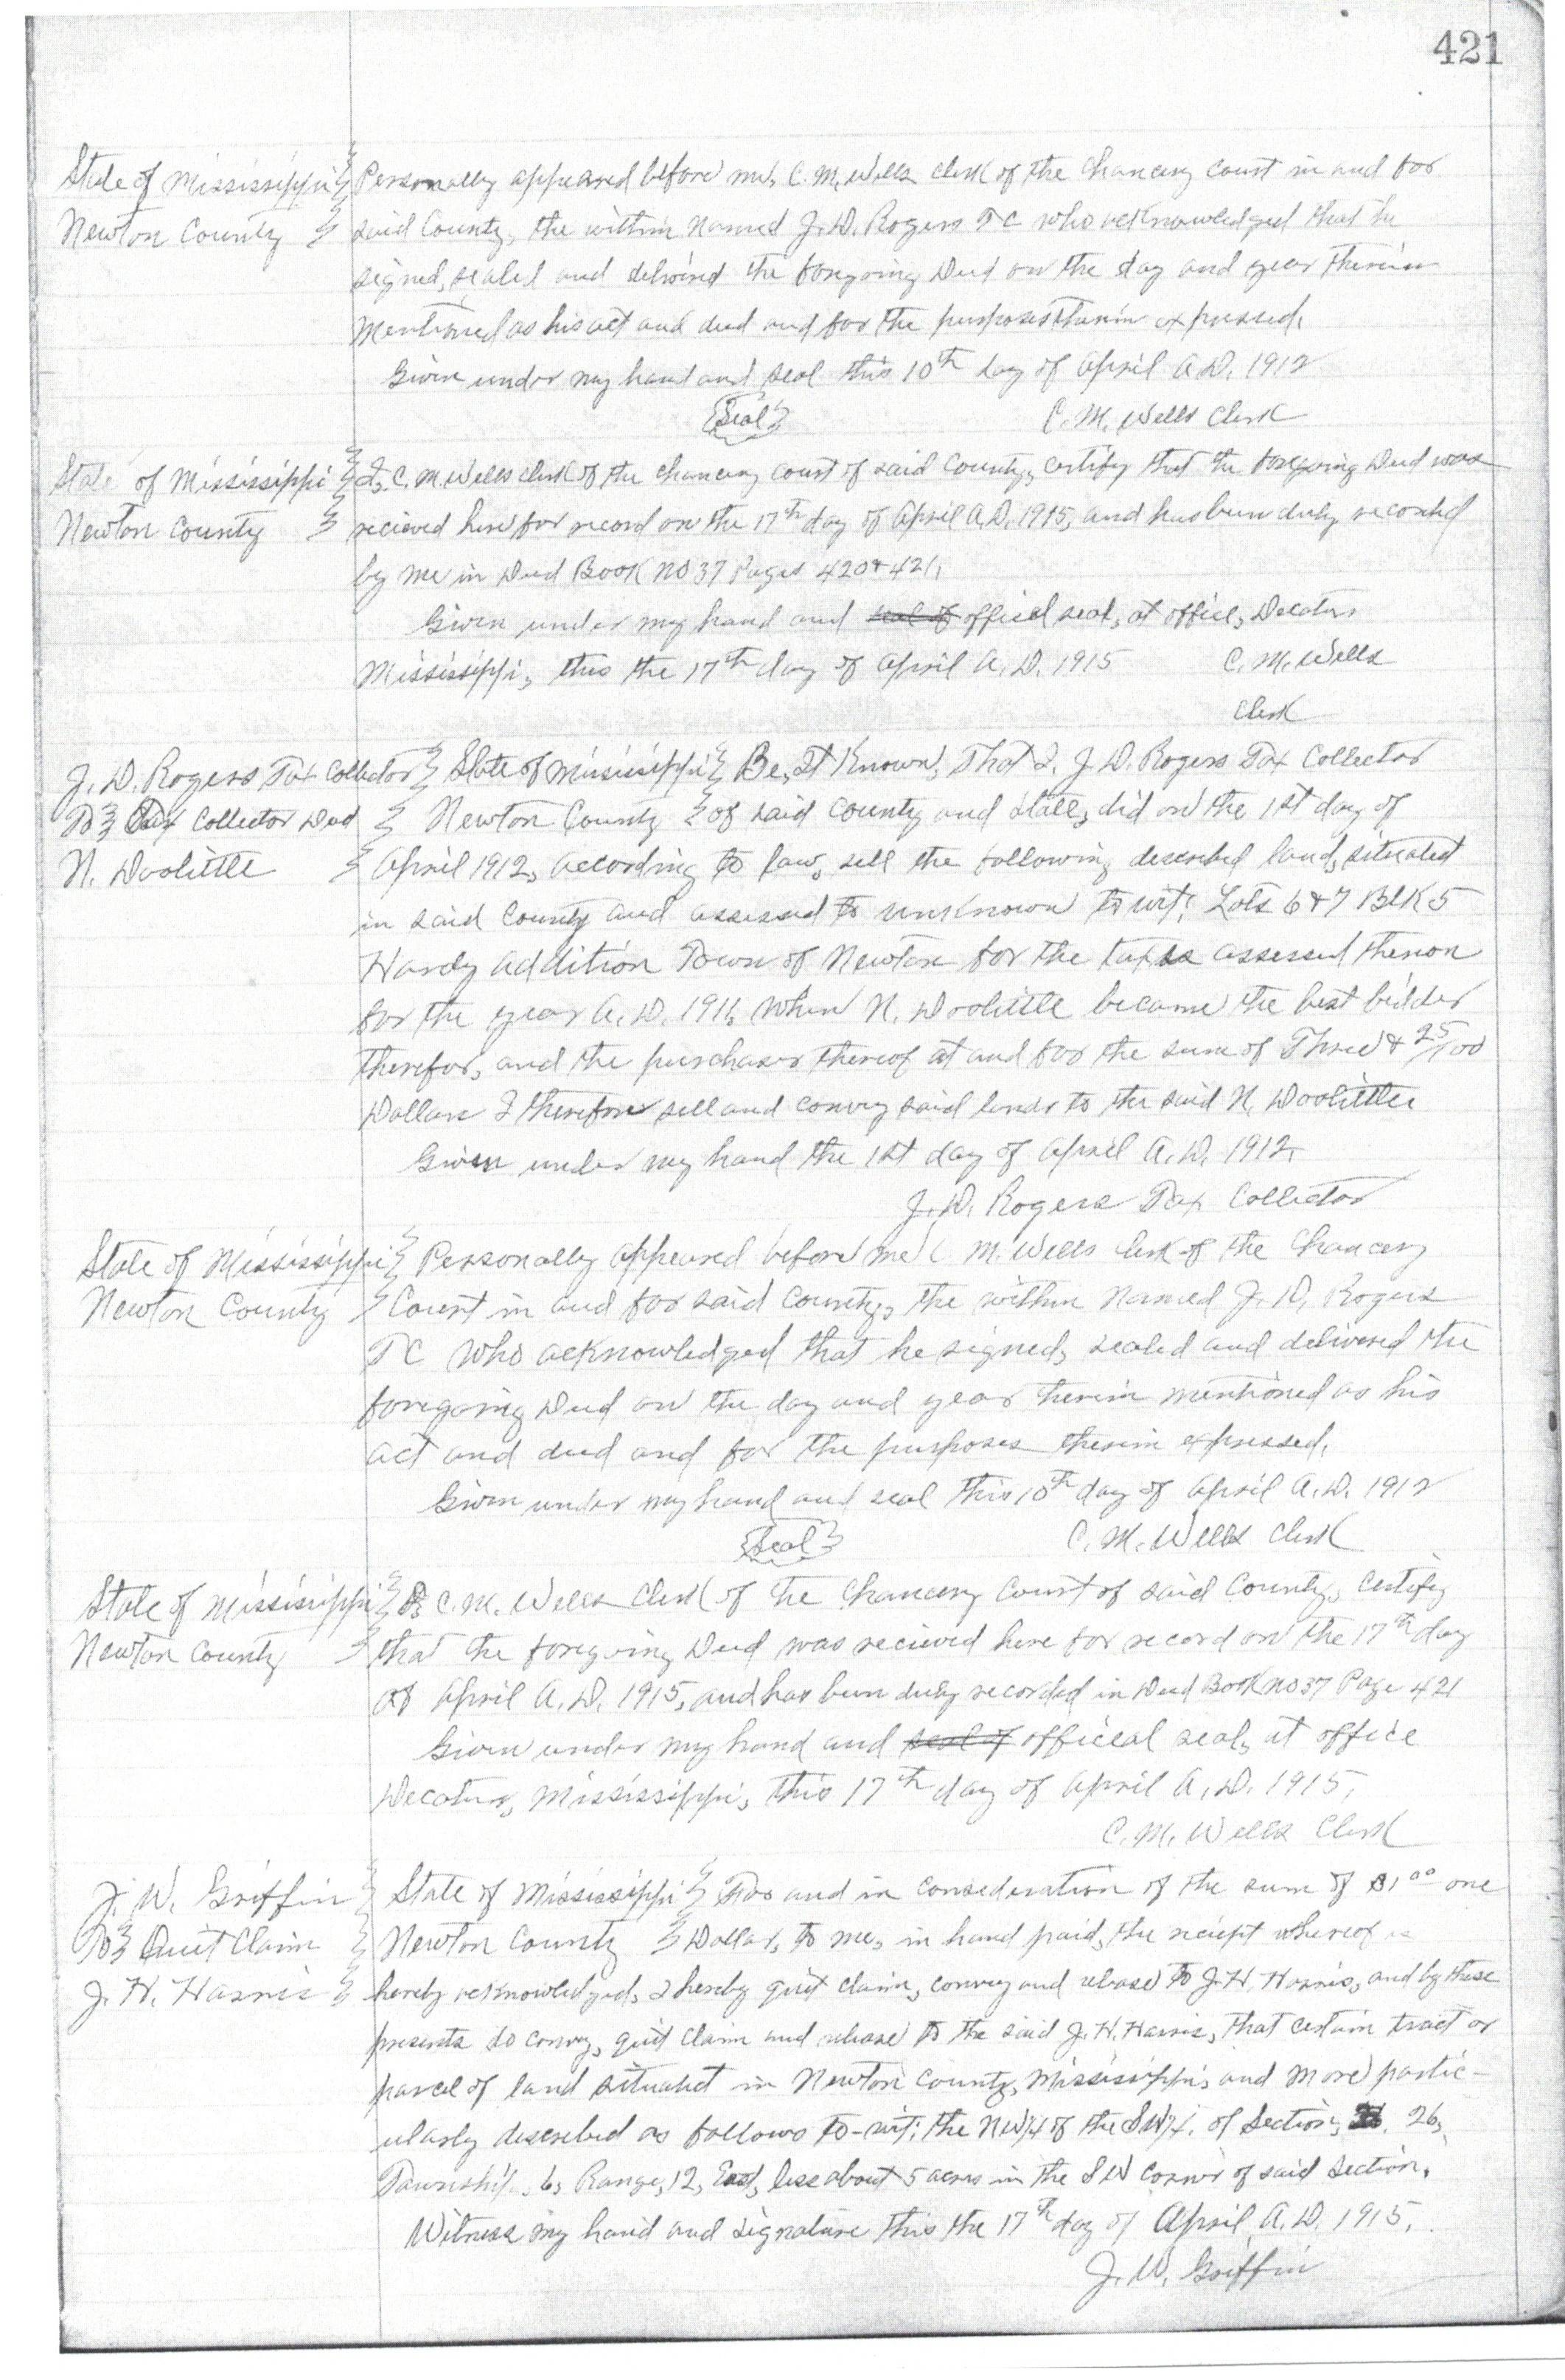 421
State of Mississippi } Personally appeared before me, C. M. Wells clerk of the Chancery Court in and for
Newton County } said County, the within named J. D. Rogers TC who acknowledged that he
signed, sealed and delivered the foregoing Deed on the day and year therein
Mentioned as his act and deed and for the purposes therein expressed.
Given under my hand and seal this 10th day of April A.D. 1912
{Seal} C. M. Wells Clerk
State of Mississippi } I, C. M. Wells Clerk of the Chancery Court of said County, certify that the foregoing Deed was
Newton County } recieved here for record on the 17th day of April A.D. 1915, and has been duly recorded
by me in Deed Book No 37 Pages 420 & 421.
Given under my hand and seal of official seal, at office, Decatur
Mississippi, this the 17th day of April A. D. 1915 C. M. Wells
Clerk
J. D. Rogers Tax Collector } State of Mississippi } Be, It Known, That I, J. D. Rogers Tax Collector
To } Tax Collector Deed } Newton County } of said County and State, did on the 1st day of
N. Doolittle } April 1912, according to law, sell the following described land, situated
in said County and assessed to unknown to wit: Lots 6 & 7 Blk 5
Hardy Addition Town of Newton for the taxes assessed thereon
for the year A. D. 1911, when N. Doolittle became the best bidder
therefor, and the purchaser thereof at and for the sum of Three & 25/100
Dollars I therefore sell and convey said lands to the said N. Doolittle
Given under my hand the 1st day of April A. D. 1912.
J. D. Rogers Tax Collector
State of Mississippi } Personally appeared before me C. M. Wells Clerk of the Chancery
Newton County } Court in and for said County, the within named J. D. Rogers
TC who acknowledged that he signed, sealed and delivered the
foregoing Deed on the day and year therein mentioned as his
act and deed and for the purposes therein expressed.
Given under my hand and seal this 10th day of April A. D. 1912
{Seal} C. M. Wells Clerk
State of Mississippi } I, C. M. Wells Clerk of the Chancery Court of said County, certify
Newton County } that the foregoing Deed was recieved here for record on the 17th day
of April A. D. 1915, and has been duly recorded in Deed Book No 37 Page 421
Given under my hand and seal of official seal, at office
Decatur, Mississippi, this 17th day of April A. D. 1915.
C. M. Wells Clerk
J. W. Griffin } State of Mississippi } For and in consideration of the sum of $1.00 one
To } Quit Claim } Newton County } Dollar, to me, in hand paid, the reciept whereof is
J. H. Harris } hereby acknowledged, I hereby quit claim, convey and release to J. H. Harris, and by these
presents do convey, quit claim and release to the said J. H. Harris, that certain tract or
parcel of land situated in Newton County, Mississippi, and more partic-
ularly described as follows to-wit: the NW/4 of the SW/4. of Section, 26,
Township, 6, Range, 12, East, less about 5 acres in the SW corner of said Section.
Witness my hand and signature this the 17th day of April A. D. 1915.
J. W. Griffin